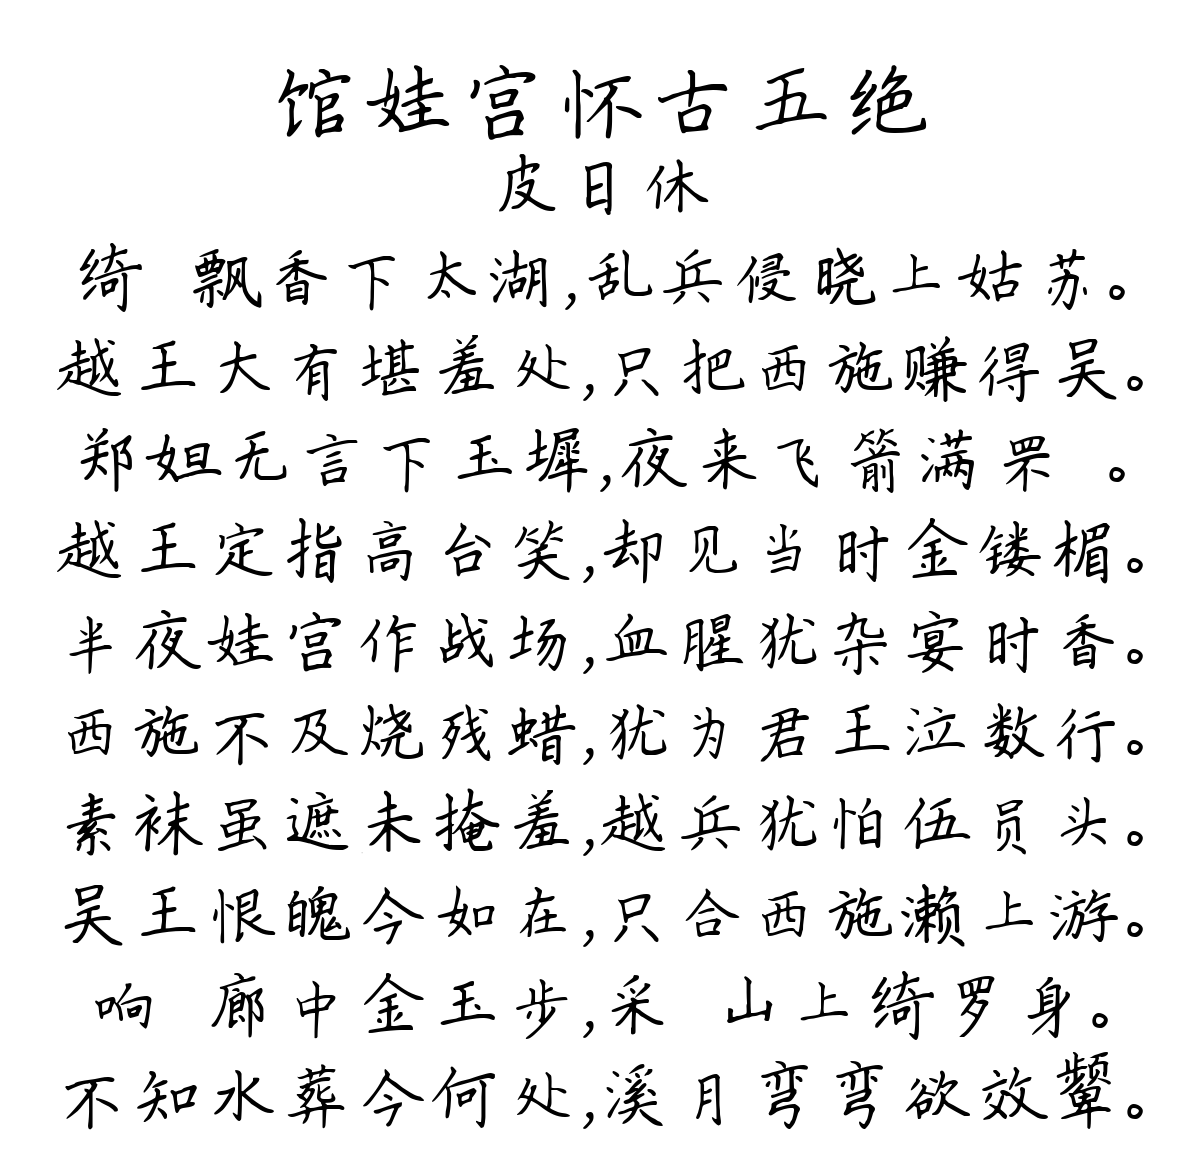 馆娃宫怀古五绝
皮日休
绮 飘香下太湖,乱兵侵晓上姑苏。
越王大有堪羞处,只把西施赚得吴。
郑妲无言下玉墀,夜来飞箭满罘 。
越王定指高台笑,却见当时金镂楣。
半夜娃宫作战场,血腥犹杂宴时香。
西施不及烧残蜡,犹为君王泣数行。
素袜虽遮未掩羞,越兵犹怕伍员头。
吴王恨魄今如在,只合西施濑上游。
响 廊中金玉步,采 山上绮罗身。
不知水葬今何处,溪月弯弯欲效颦。